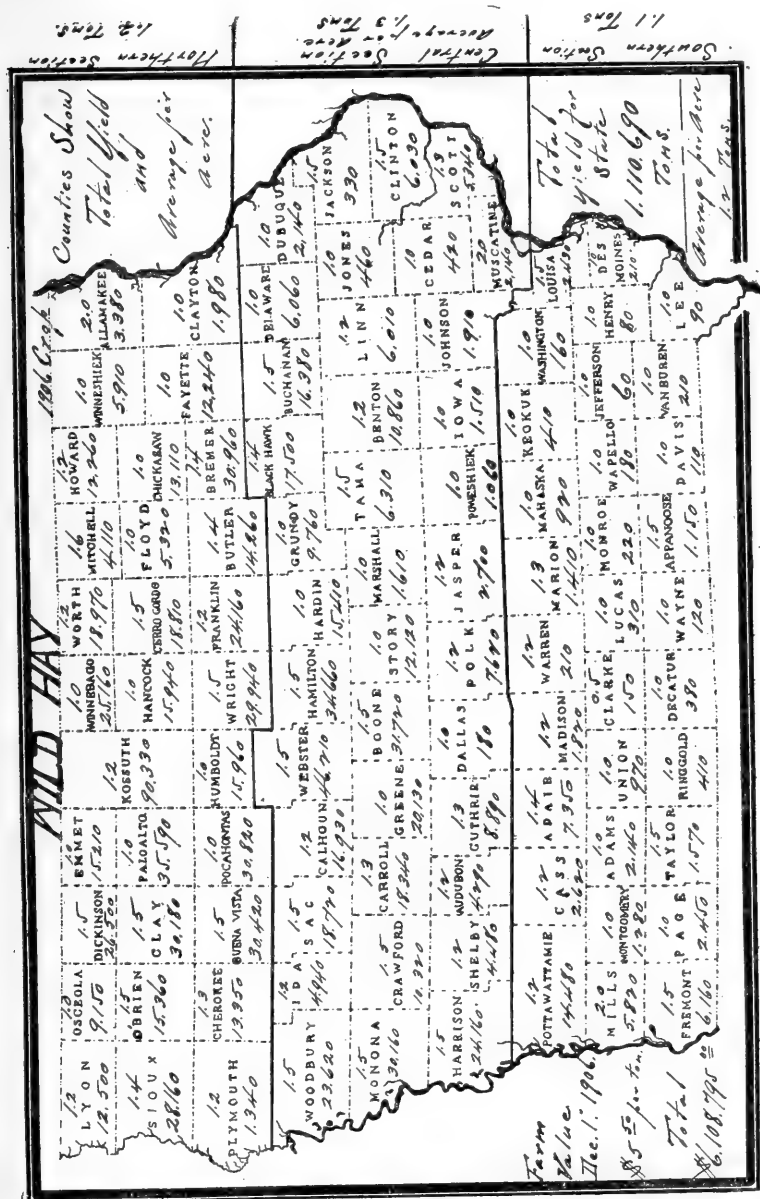 WILD HAY
1906 Crop
Counties Show
Total Yield
and
Average per
Acre.
Northern
Section
1.2 Tons.
Central
Section
Average per Acre
1.3 Tons
Southern
Section
1.1 Tons
1.2
LYON
12.500
OSCEOLA
9.150
1.5
DICKINSON
EMMET
15.210
1.2
KOSSUTH
90.330
1.0
WINNEBAGO
25.160
1.2
WORTH
18.970
1.6
MITCHELL
4.110
1.2
HOWARD
12.260
1.0
WINNESHIEK
5.910
2.0
ALLAMAKEE
3.380
1.4
SIOUX
28.160
1.5
OBRIEN
15.360
1.5
CLAY
30.180
1.0
PALO ALTO
35.590
1.0
HANCOCK
15.940
1.5
CERRO GORDO
18.810
1.0
FLOYD
5.320
1.0
CHICKASAW
13.110
1.0
FAYETTE
12.240
1.0
CLAYTON
1.980
1.2
PLYMOUTH
1.340
1.3
CHEROKEE
13.350
1.5
BUENA VISTA
30.420
1.0
POCAHONTAS
30.820
1.0
HUMBOLDT
15.960
1.5
WRIGHT
29.940
1.2
FRANKLIN
24.160
1.4
BUTLER
14.860
1.4
BREMER
30.960
1.5
WOODBURY
23.620
1.2
IDA
4.940
1.5
SAC
18.720
1.2
CALHOUN
16.930
1.5
WEBSTER
46.210
1.5
HAMILTON
34.660
1.0
HARDIN
15.410
1.0
GRUNDY
9.760
1.4
BLACK HAWK
17.500
1.5
BUCHANAN
16.380
1.0
DELAWARE
6.060
1.0
DUBUQUE
2.140
1.5
MONONA
30.160
1.5
CRAWFORD
10.320
1.3
CARROLL
18.340
1.0
GREENE
20.130
1.5
BOONE
31.720
1.0
STORY
12.120
1.0
MARSHALL
1.610
1.5
TAMA
6.310
1.2
BENTON
10.860
1.2
LINN
6.010
1.0
JONES
460
1.5
JACKSON
330
1.5
CLINTON
6.030
1.5
HARRISON
24.160
1.2
SHELBY
4.480
1.2
AUDUBON
4.290
1.3
GUTHRIE
8.890
1.0
DALLAS
180
1.2
POLK
7.620
1.2
JASPER
2.700
1.0
POWESHIEK
1.060
1.0
IOWA
1.510
1.0
JOHNSON
1.910
1.0
CEDAR
420
1.3
SCOTT
5.340
2.0
MUSCATINE
2.140
1.2
POTTAWATTAMIE
14.480
1.2
CASS
2.620
1.4
ADAIR
7.350
1.2
MADISON
1.820
1.2
WARREN
210
1.3
MARION
1.410
1.0
MAHASKA
920
1.0
KEOKUK
410
1.0
WASHINGTON
160
1.5
LOUISA
2.430
2.0
MILLS
5.820
1.0
MONTGOMERY
1.280
1.0
ADAMS
2.140
1.0
UNION
970
0.5
CLARKE
150
1.0
LUCAS
310
1.0
MONROE
220
1.0
WAPELLO
180
1.0
JEFFERSON
60
1.0
HENRY
80
DES
MOINES
210
1.5
FREMONT
6.160
1.0
PAGE
2.450
1.5
TAYLOR
1.570
1.0
RINGGOLD
410
1.0
DECATUR
380
1.0
WAYNE
120
1.5
APPANOOSE
1.150
1.0
DAVIS
110
1.0
VAN BUREN
210
1.0
LEE
90
Farm
Value
Dec. 1. 1906.
$5 50 per ton.
Total
$6,108,795 00
Total
Yield for
State
1.110.690
Tons.
Average per Acre
1.2 Tons.